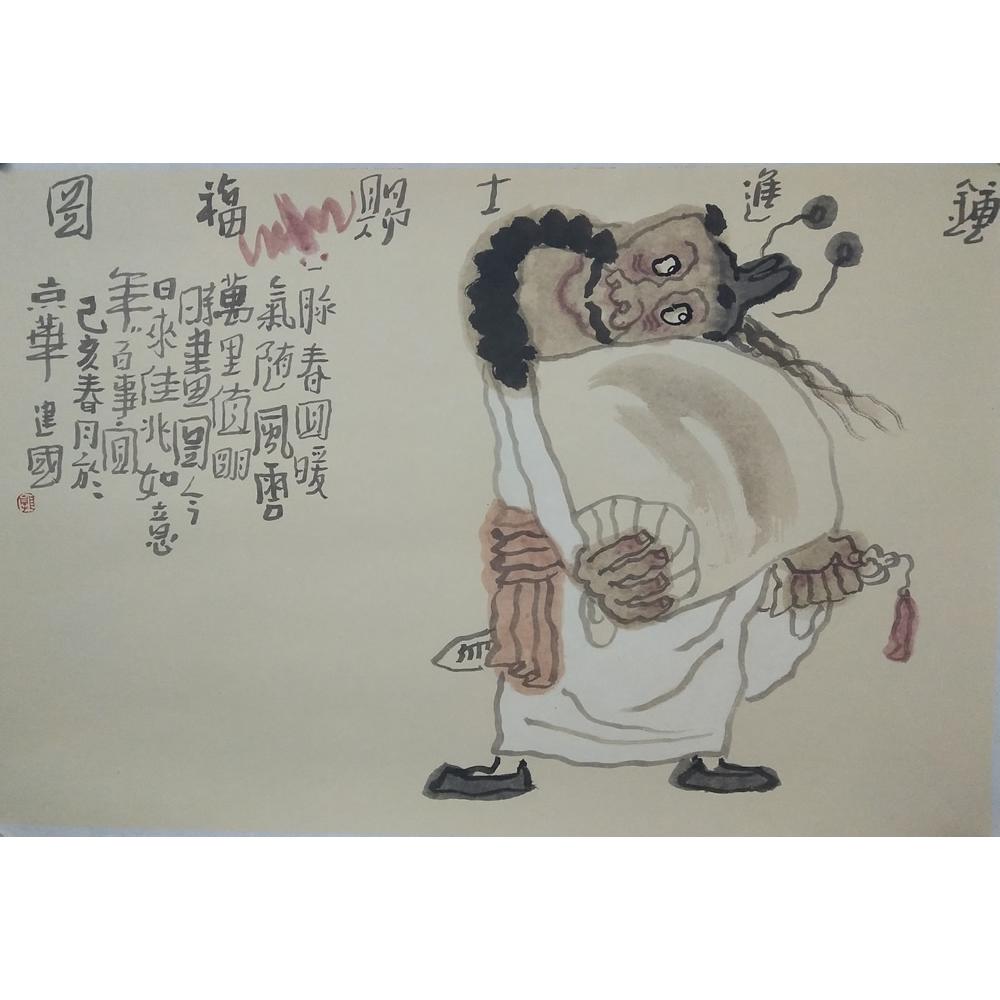 鍾進士賜福圖
一脉春回暖
氣随風雲
萬里值明
時畫圖今
日來佳兆如意
年々百事宜
己亥春月於
京華 建國
郭